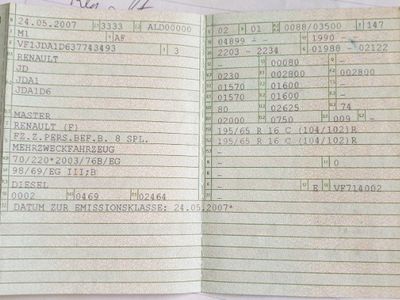 24.05.2007 3333 ALD00000
M1 AF
VF1JDA1D637743493 3
RENAULT
JD
JDA1
JDA1D6
MASTER
RENAULT (F)
FZ.Z.PERS.BEF.B. 8 SPL.
MEHRZWECKFAHRZEUG
70/220*2003/76B/EG
98/69/EG III;B
DIESEL
0002 0469 02464
DATUM ZUR EMISSIONSKLASSE: 24.05.2007*
02 01 0088/03500 147
04899 - 1990 -
2203 - 2234 01980 - 02122
- 00080 -
0230 002800 002800
01570 01600 -
01570 01600 -
80 02625 74
02000 0750 009 -
195/65 R 16 C (104/102)R
195/65 R 16 C (104/102)R
-
- 0
-
E VF714002